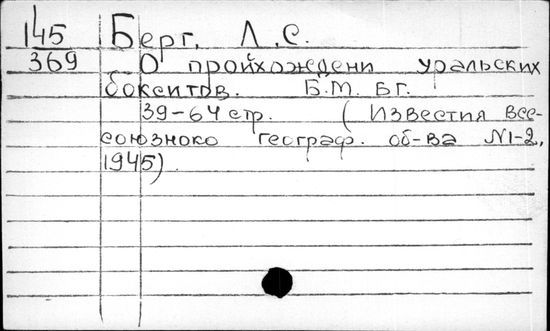 145 Берг, Л.С.
369 О пройхождени уральских
бокситов. Б.М. Бг.
39-64 стр. (Известия Все-
союзноко географ. об-ва №1-2,
1945).